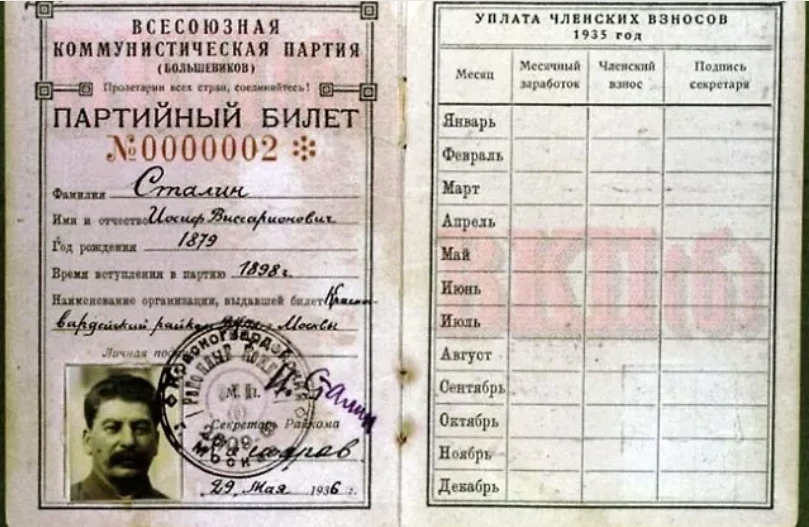 ВСЕСОЮЗНАЯ
КОММУНИСТИЧЕСКАЯ ПАРТИЯ
(БОЛЬШЕВИКОВ)
Пролетарии всех стран, соединяйтесь!
ПАРТИЙНЫЙ БИЛЕТ
№0000002
Фамилия Сталин
Имя и отчество Иосиф Виссарионович
Год рождения 1879
Время вступления в партию 1898 г.
Наименование организации, выдавшей билет Красно
гвардейский райком Москвы
Личная
Красногвардейский
Районный
М. П.
И. Сталин
Секретарь Райкома
29 Мая 1936 г.
УПЛАТА ЧЛЕНСКИХ ВЗНОСОВ
1935 год
Месяц Месячный заработок Членский взнос Подпись секретаря
Январь
Февраль
Март
Апрель
Май
Июнь
Июль
Август
Сентябрь
Октябрь
Ноябрь
Декабрь
ВКП(б)